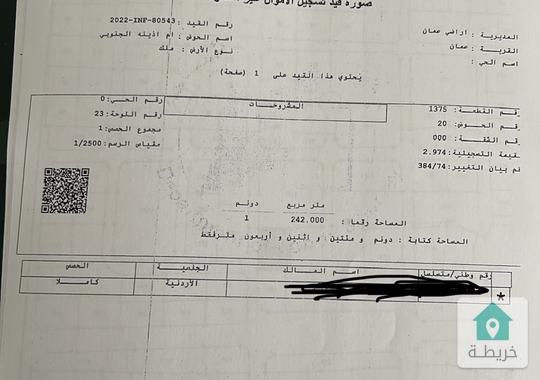 صورة قيد تسجيل الأموال غير
رقم القيد : 2022-INF-80543
المديرية : اراضي عمان
اسم الحوض: ام اذينه الجنوبي
القرية : عمان
نوع الأرض : ملك
اسم الحي :
يحتوي هذا القيد على 1 (صفحة)
المشروحات
رقم القطعة: 1375
رقم الحي: 0
رقم الحوض: 20
رقم اللوحة: 23
رقم الشقة: 000
مجموع الحصص: 1
قيمة التسجيلية: 2.974
مقياس الرسم: 1/2500
رقم بيان التغيير: 384/74
متر مربع دونم
المساحة رقما : 242.000 1
المساحة كتابة : دونم و مئتين و اثنين و أربعون مترفقط
رقم وطني/متسلسل اسم المالك الجنسية الحصص
* الأردنية كاملا
خريطة